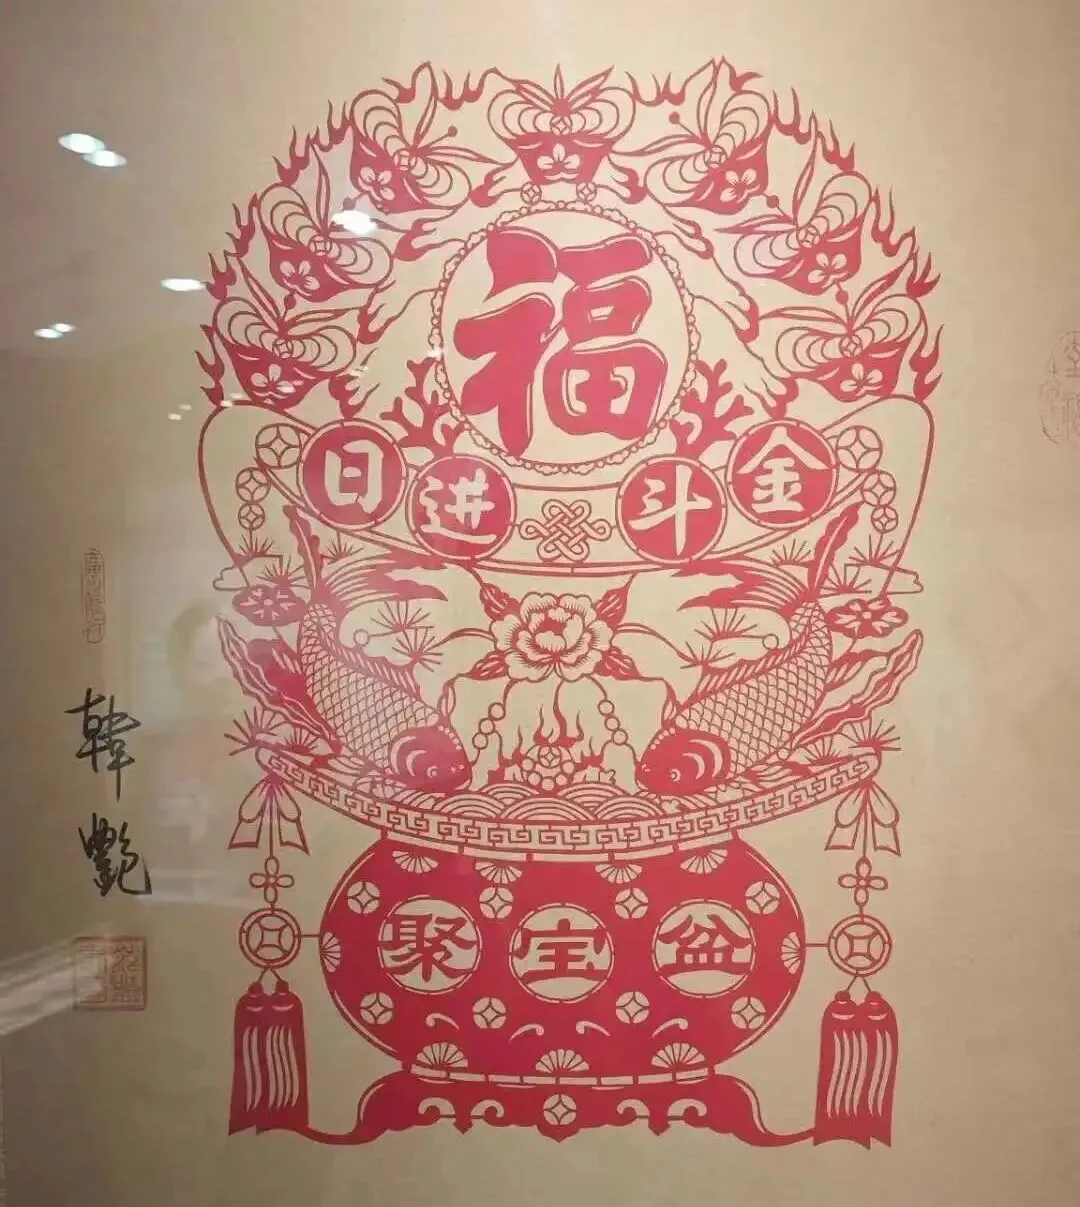 福
日进斗金
聚宝盆
韩艷